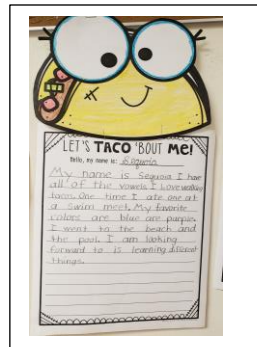 LET'S TACO 'BOUT ME!
Hello, my name is: Sequoia
My name is Sequoia I have
all of the vowels. I Love walking
tacos. One time I ate one at
a swim meet. My favorite
colors are blue are purple.
I went to the beach and
the pool. I am looking
forward to is learning different
things.